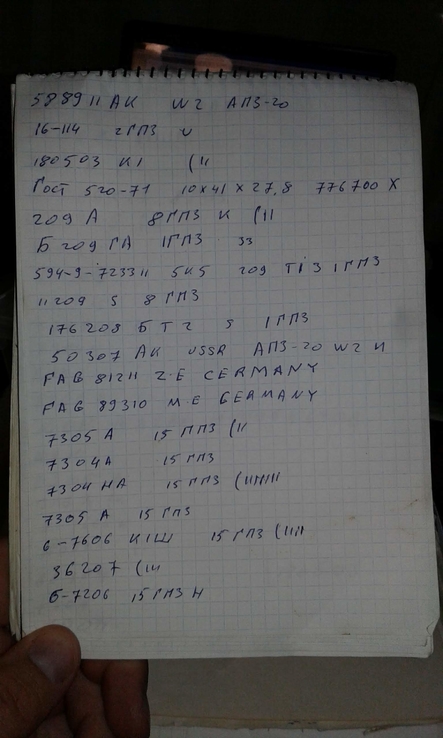 588911 АК W2 АПЗ-20
16-114 2ГПЗ U
180503 К1 (11
Гост 520-71 10x41x27,8 776700 X
209 А 8ГПЗ К (11
Б 209 ГА 1ГПЗ 33
594-9-723311 5К5 209 Т13 1ГПЗ
11209 5 8ГПЗ
176208 БТ2 5 1ГПЗ
50307 АК USSR АПЗ-20 W2 И
FAG 81211 Z-E GERMANY
FAG 89310 M-E GERMANY
7305 А 15 ГПЗ (11
7304А 15 ГПЗ
7304 НА 15 ГПЗ (1111111
7305 А 15 ГПЗ
6-7606 К1Ш 15 ГПЗ (1111
36207 (111
6-7206 15 ГПЗ Н